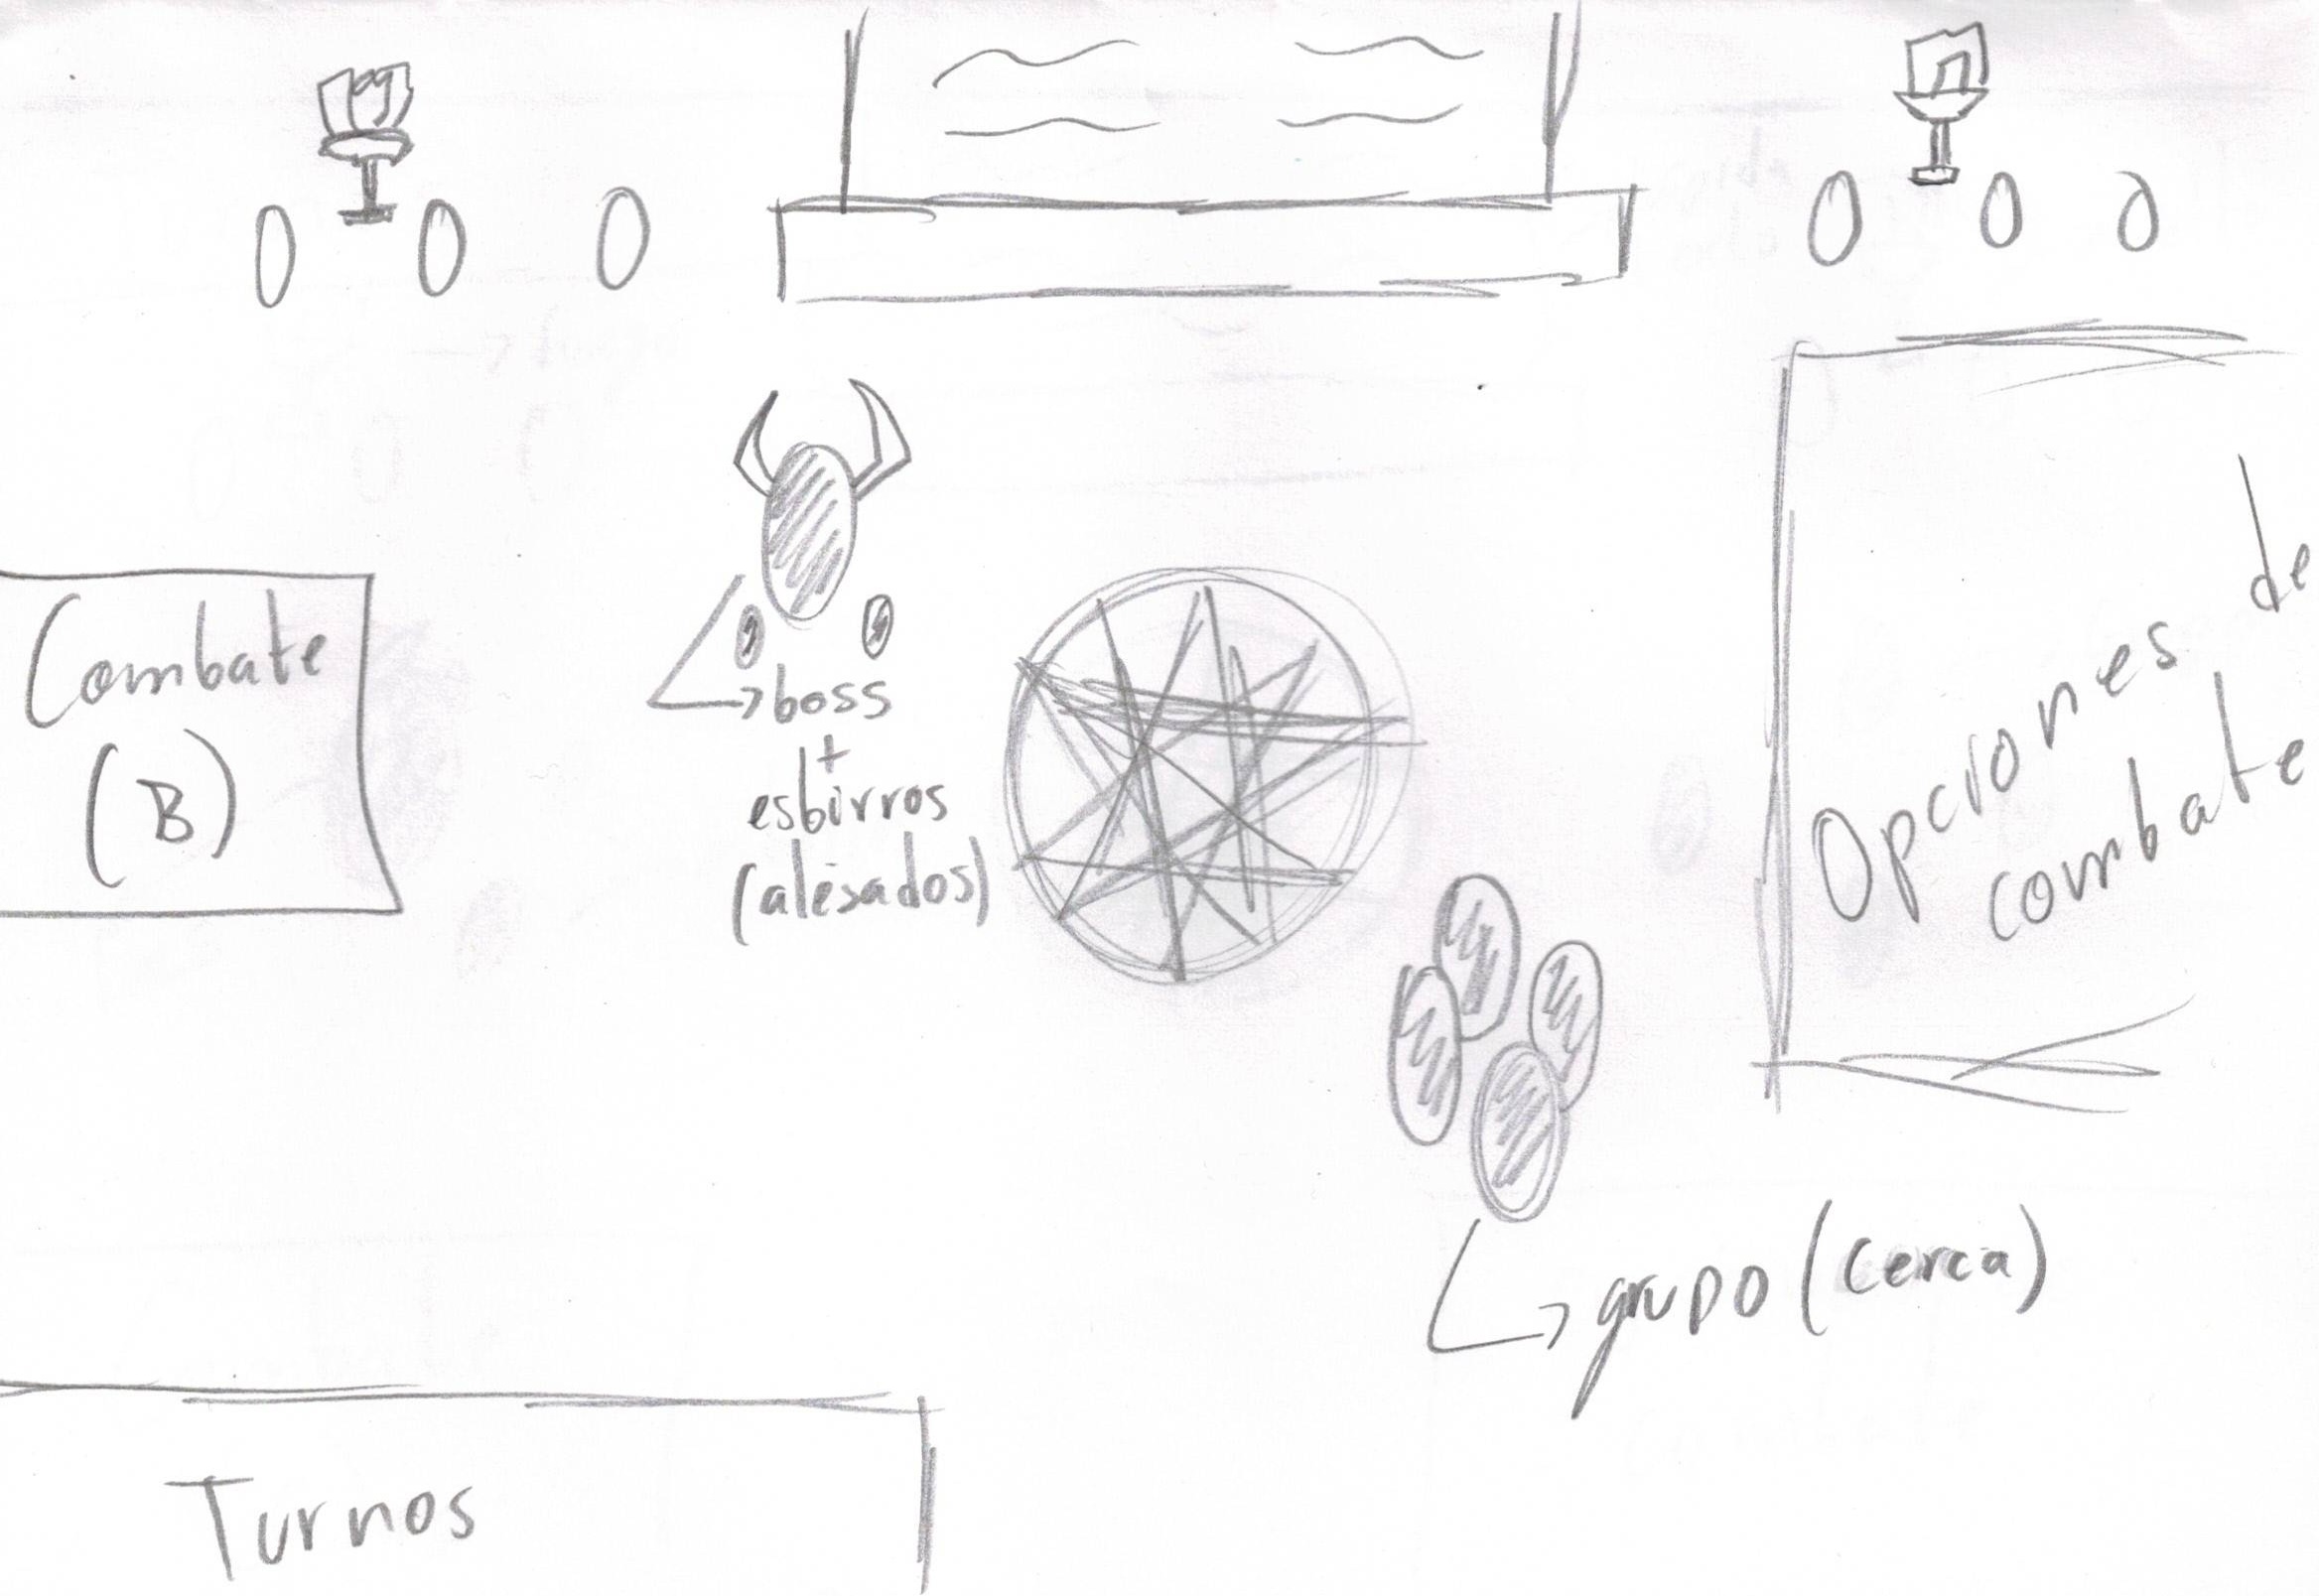 Combate
(B)
boss
+
esbirros
(alesados)
Opciones de
combate
grupo (cerca)
Turnos